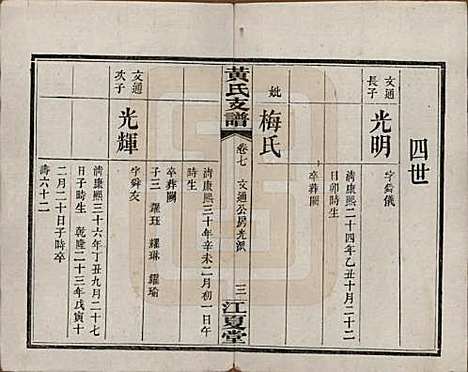 四世
文通
長子
光明
字舜儀
清康熙二十四年乙丑十月二十二
日卯時生
卒葬闕
妣
梅氏
清康熙三十年辛未二月初一日午
時生
卒葬闕
子三 耀珏 耀琳 耀瑜
黃氏支譜
卷七 文通公房光派
三
江夏堂
文通
次子
光輝
字舜友
清康熙三十六年丁丑九月二十七
日子時生 乾隆二十三年戊寅十
二月二十日子時卒
壽六十二